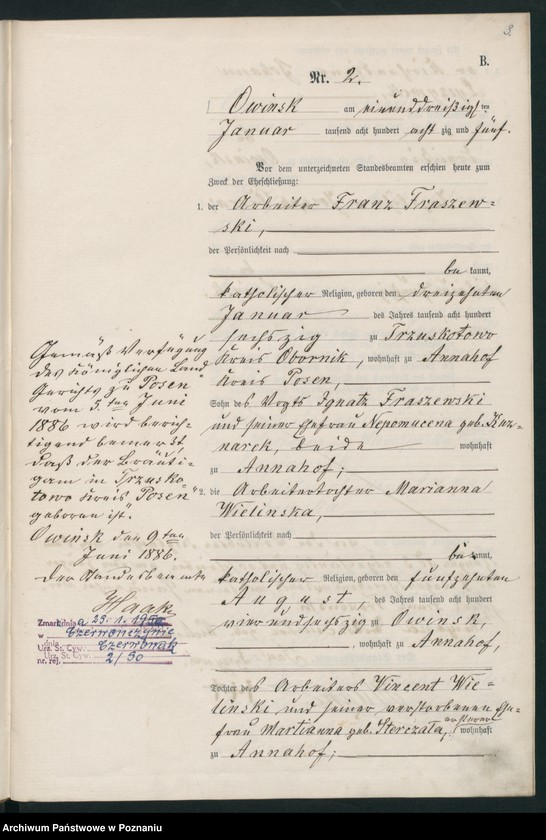 3.
B.
Nr. 2.
Owinsk am einunddreißigsten
Januar tausend acht hundert acht zig und fünf.
Vor dem unterzeichneten Standesbeamten erschien heute zum
Zweck der Eheschließung:
1. der Arbeiter Franz Fraszew-
ski,
der Persönlichkeit nach
bekannt,
katholischer Religion, geboren den dreizehnten
Januar des Jahres tausend acht hundert
sechszig zu Trzuskotowo
Kreis Obornik, wohnhaft zu Annahof
Kreis Posen,
Sohn des Vogts Ignatz Fraszewski
und seiner Ehefrau Nepomucena geb. Kaz-
narek, beide wohnhaft
zu Annahof;
2. die Arbeitertochter Marianna
Wielinska,
der Persönlichkeit nach
bekannt,
katholischer Religion, geboren den fünfzehnten
August, des Jahres tausend acht hundert
vierundsechszig zu Owinsk,
, wohnhaft zu Annahof,
Tochter des Arbeiters Vincent Wie-
linski und seiner verstorbenen Ehe-
frau Martianna geb. Sterczata, ersterer wohnhaft
zu Annahof;
Gemäß Verfügung
des Königlichen Land
Gerichts zu Posen
vom 5. ten Juni
1886 wird berich-
tigend bemerkt,
daß der Bräuti-
gam in "Trzusko-
towo Kreis Posen"
geboren ist.
Owinsk den 9ten
Juni 1886.
Der Standesbeamte
Haak
Zmarł dnia 25.1.19
w Czerwonczynie
Urz. St. Cyw. Czerwonak
nr. rej. 2/50
Archiwum Państwowe w Poznaniu